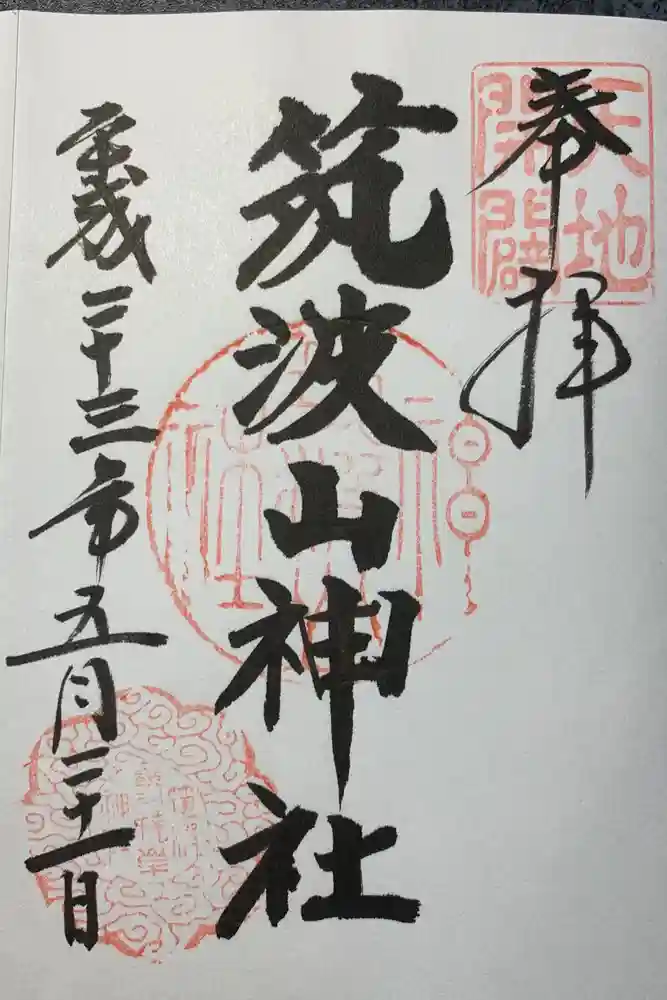 奉拝
天地
開闢
筑波山神社
平成二十三年五月二十一日